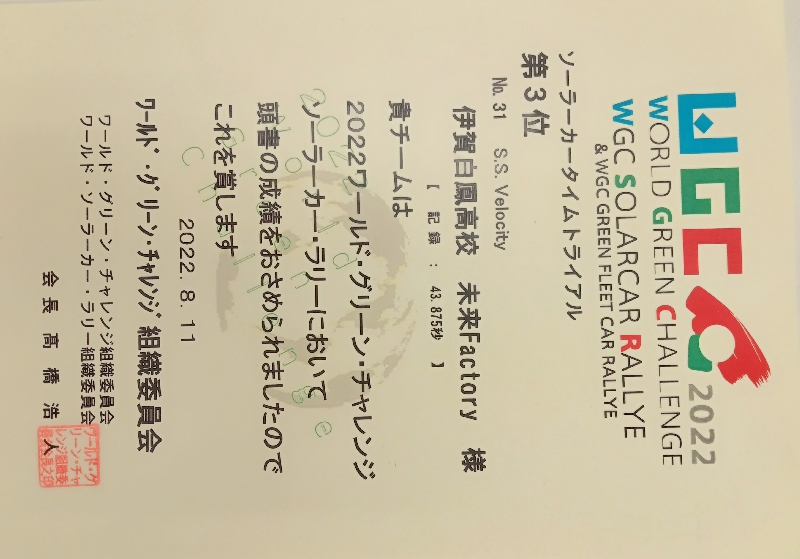 WGC 2022
WORLD GREEN CHALLENGE
WGC SOLARCAR RALLYE
& WGC GREEN FLEET CAR RALLYE
ソーラーカータイムトライアル
第3位
No. 31 S.S. Velocity
伊賀白鳳高校 未来Factory 様
【 記録 : 43.875秒 】
貴チームは
2022ワールド・グリーン・チャレンジ
ソーラーカー・ラリーにおいて
頭書の成績をおさめられましたので
これを賞します
2022 World Green Challenge
2022.8.11
ワールド・グリーン・チャレンジ組織委員会
ワールド・グリーン・チャレンジ組織委員会
ワールド・ソーラーカー・ラリー組織委員会
会長 高橋浩人
ワールド・グ
リーン・チャ
レンジ組織委